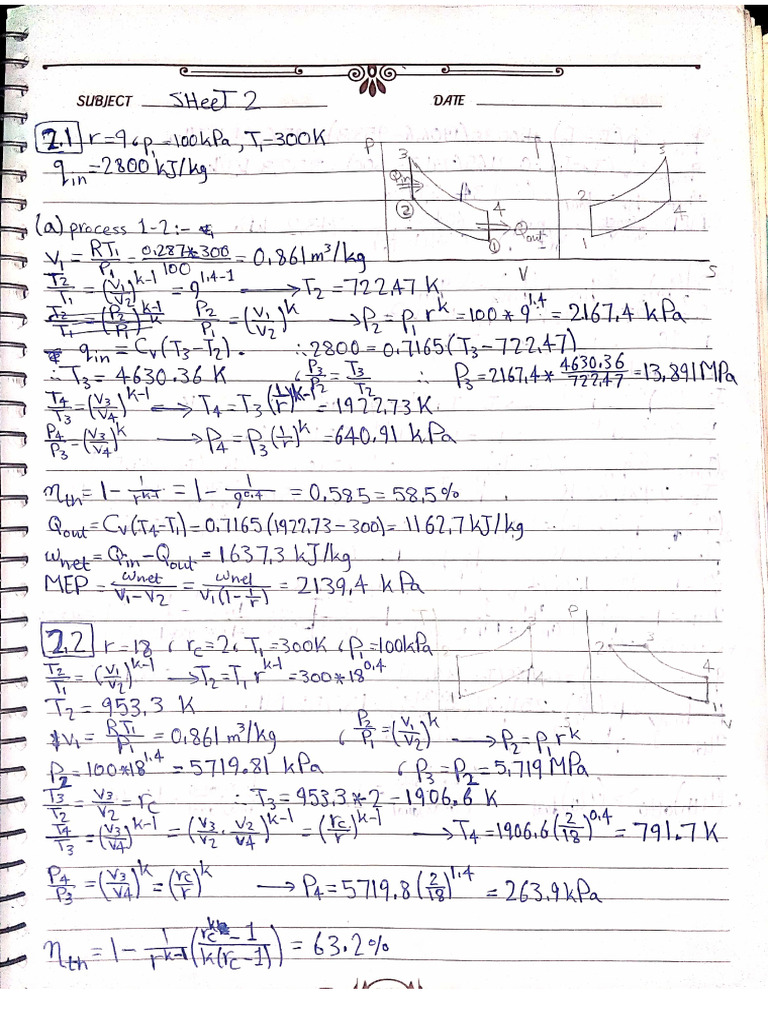 SUBJECT SHeeT 2 DATE
2.1 r=9, P₁=100kPa, T₁=300K
q_in=2800 kJ/kg
P 3 Q_in 2 4 1 Q_out V
T 3 2 4 1 S
(a) process 1-2:-
V₁ = RT₁/P₁ = 0.287*300/100 = 0.861 m³/kg
T₂/T₁ = (V₁/V₂)^(k-1) = 9^(1.4-1) → T₂=722.47 K
T₂/T₁ = (P₂/P₁)^((k-1)/k) P₂/P₁ = (V₁/V₂)^k → P₂=P₁r^k=100*9^1.4=2167.4 kPa
q_in = Cv(T₃-T₂). ∴2800=0.7165(T₃-722.47)
∴T₃=4630.36 K , P₃/P₂ = T₃/T₂ ∴ P₃=2167.4*4630.36/722.47=13.891MPa
T₄/T₃ = (V₃/V₄)^(k-1) → T₄=T₃(1/r)^(k-1)=1922.73K
P₄/P₃ = (V₃/V₄)^k → P₄=P₃(1/r)^k=640.91 kPa
η_th=1-1/r^(k-1) = 1-1/9^0.4 = 0.585=58.5%
Q_out=Cv(T₄-T₁)=0.7165(1922.73-300)=1162.7kJ/kg
w_net=Q_in-Q_out=1637.3 kJ/kg
MEP=w_net/(V₁-V₂) = w_net/(V₁(1-1/r)) = 2139.4 kPa
2.2 r=18, r_c=2, T₁=300K, P₁=100kPa
P 2 3 4 1 V
T₂/T₁ = (V₁/V₂)^(k-1) → T₂=T₁r^(k-1)=300*18^0.4
T₂=953.3 K
V₁=RT₁/P₁=0.861m³/kg , P₂/P₁=(V₁/V₂)^k → P₂=P₁r^k
P₂=100*18^1.4=5719.81 kPa , P₃=P₂=5.719MPa
T₃/T₂ = V₃/V₂ = r_c ∴T₃=953.3*2=1906.6 K
T₄/T₃ = (V₃/V₄)^(k-1) = (V₃/V₂ . V₂/V₄)^(k-1) = (r_c/r)^(k-1) → T₄=1906.6(2/18)^0.4=791.7K
P₄/P₃ = (V₃/V₄)^k = (r_c/r)^k → P₄=5719.8(2/18)^1.4=263.9kPa
η_th=1-1/r^(k-1)((r_c^k-1)/(k(r_c-1)))=63.2%